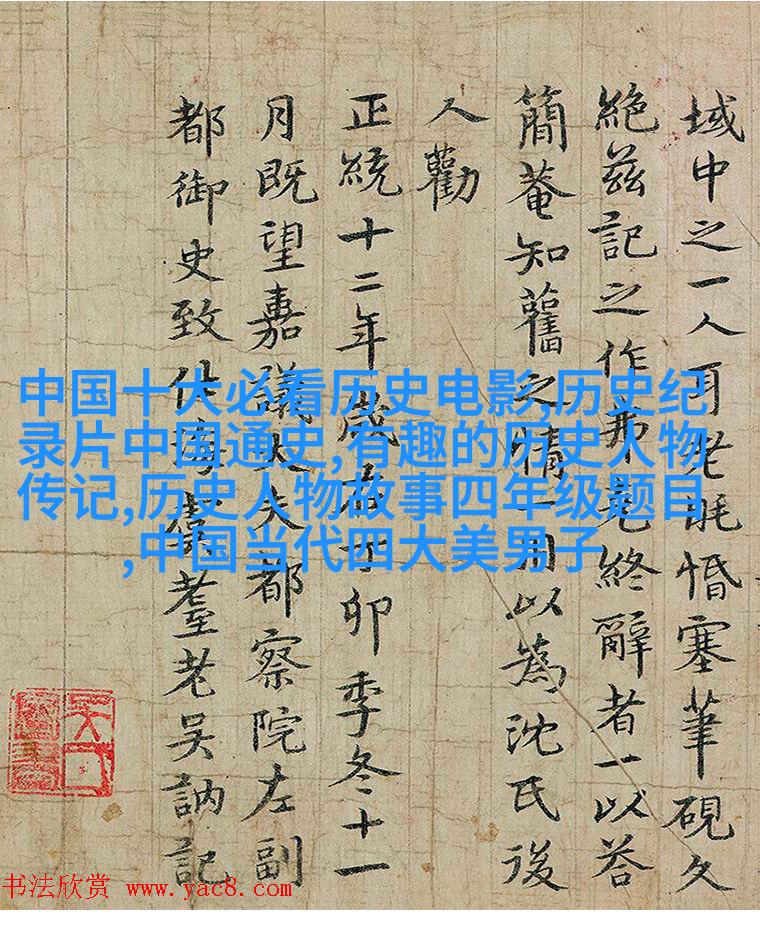 域中之一人耳老眊惛塞筆硯久
絶兹記之作弗克終辭者一以荅
簡菴知舊之情一用以為沈氏後
人勸
正統十二年歲在丁卯季冬十一
月既望嘉議大夫都察院左副
都御史致仕海虞耋老吳訥記
中国十大必看历史电影,历史纪
录片中国通史,有趣的历史人物
传记,历史人物故事四年级题目
,中国当代四大美男子
书法欣赏 www.yac8.com